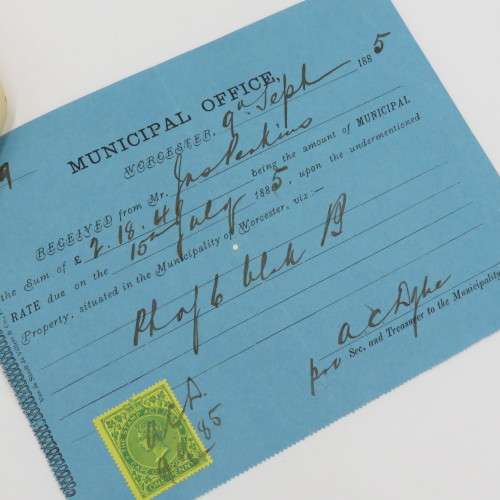 9
MUNICIPAL OFFICE,
WORCESTER, 9th Septr 1885
RECEIVED from Mr. Jno Perkins
the Sum of £ 2.18.4 being the amount of MUNICIPAL
RATE due on the 15th July 1885, upon the undermentioned
Property, situated in the Municipality of Worcester, viz:—
Pt of 6 Block B
A C Dyke
pro Sec. and Treasurer to the Municipality
85